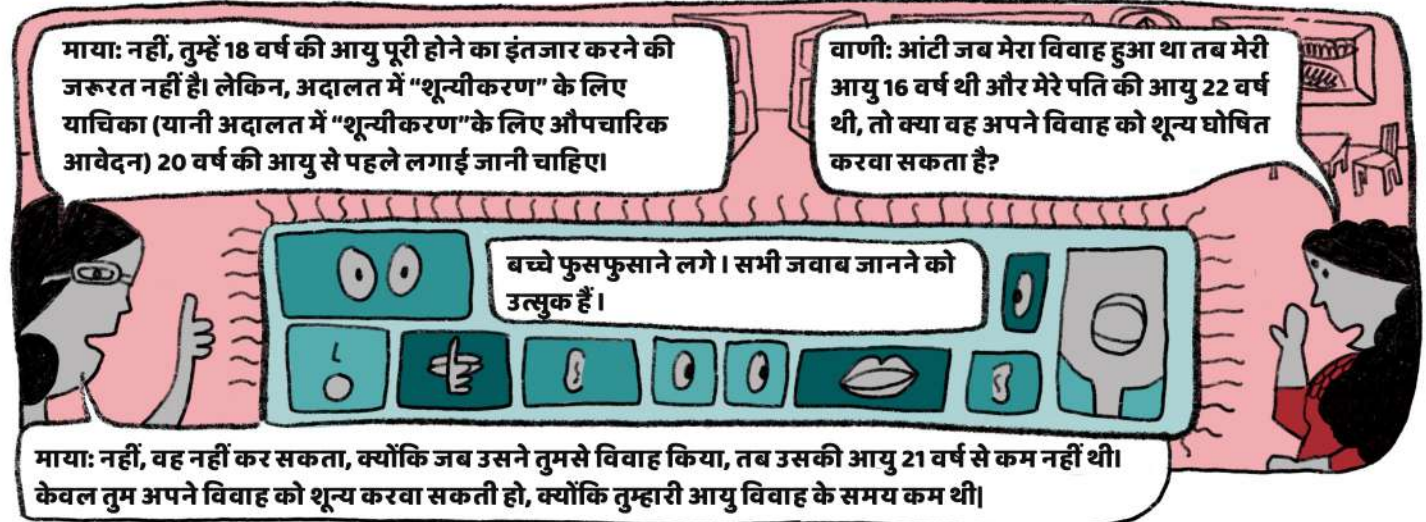 माया: नहीं, तुम्हें 18 वर्ष की आयु पूरी होने का इंतजार करने की
जरूरत नहीं है। लेकिन, अदालत में “शून्यीकरण” के लिए
याचिका (यानी अदालत में “शून्यीकरण”के लिए औपचारिक
आवेदन) 20 वर्ष की आयु से पहले लगाई जानी चाहिए।
वाणी: आंटी जब मेरा विवाह हुआ था तब मेरी
आयु 16 वर्ष थी और मेरे पति की आयु 22 वर्ष
थी, तो क्या वह अपने विवाह को शून्य घोषित
करवा सकता है?
बच्चे फुसफुसाने लगे । सभी जवाब जानने को
उत्सुक हैं ।
माया: नहीं, वह नहीं कर सकता, क्योंकि जब उसने तुमसे विवाह किया, तब उसकी आयु 21 वर्ष से कम नहीं थी।
केवल तुम अपने विवाह को शून्य करवा सकती हो, क्योंकि तुम्हारी आयु विवाह के समय कम थी|